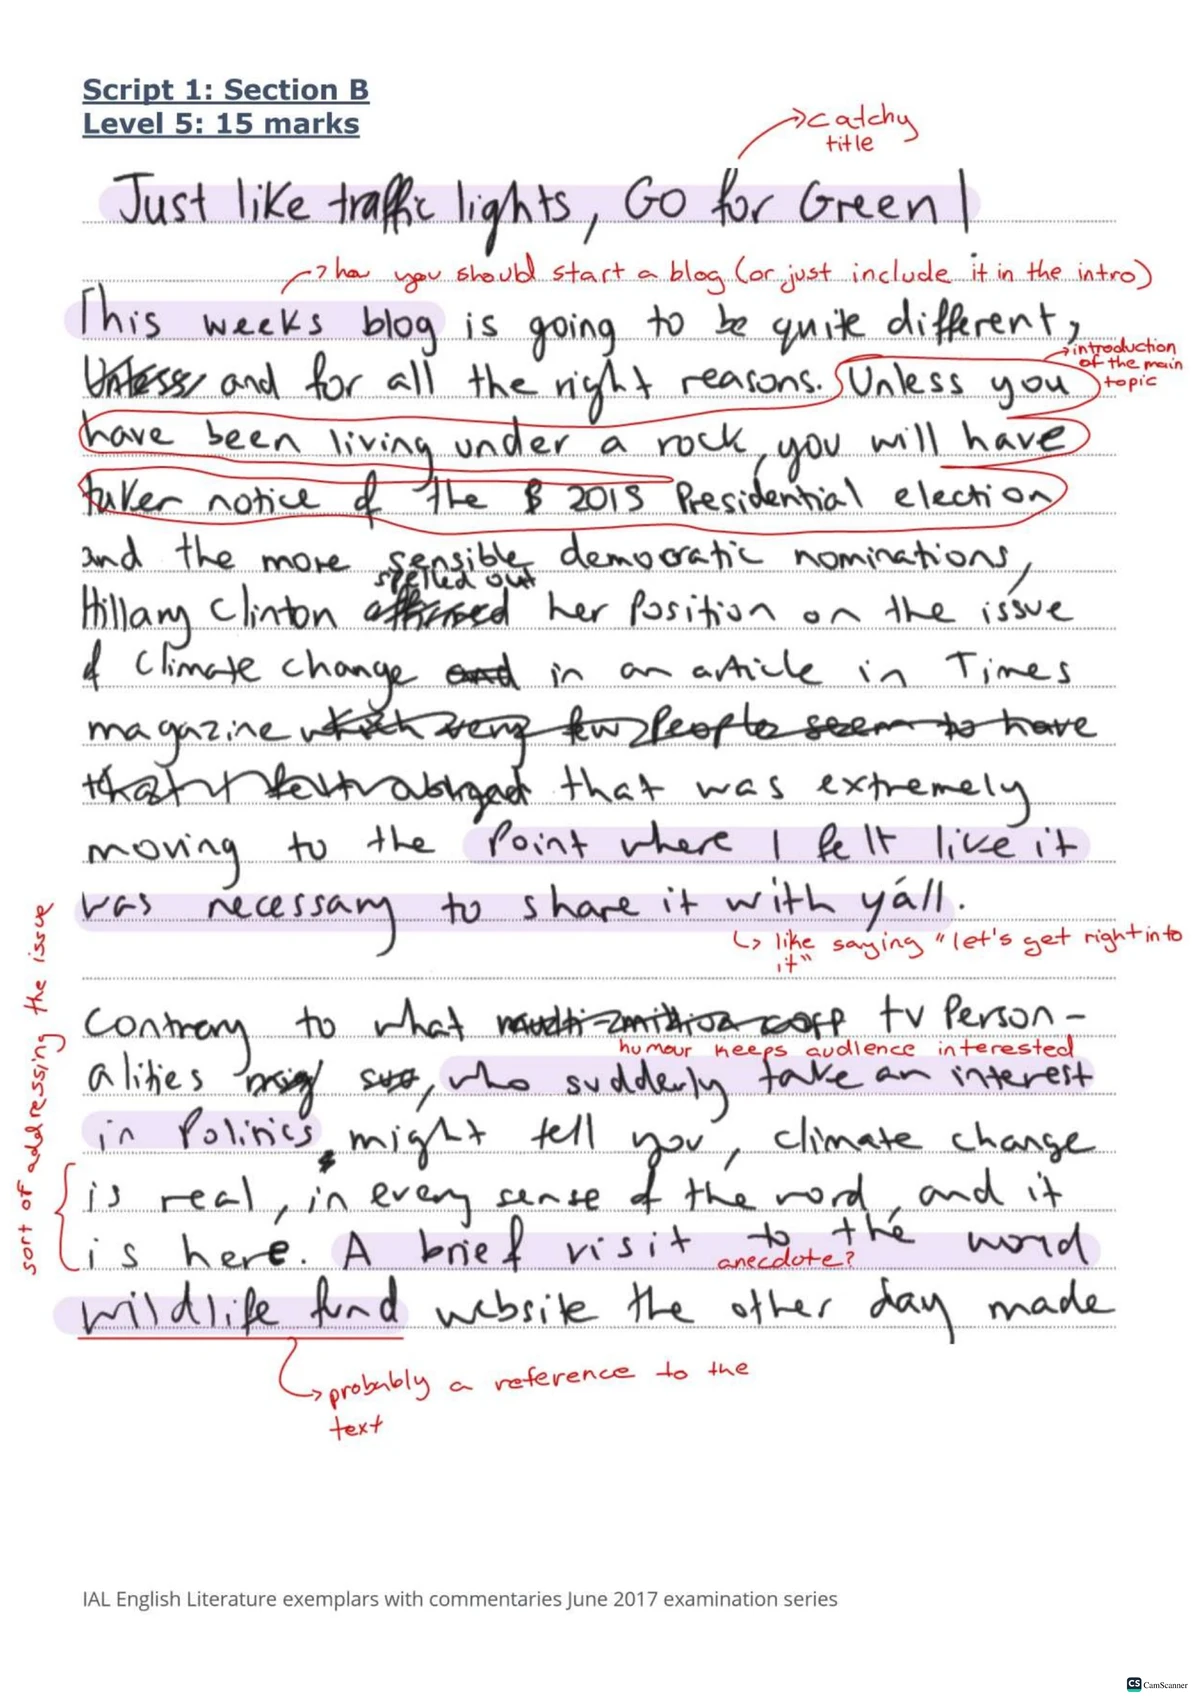 Script 1: Section B
Level 5: 15 marks
catchy
title
Just like traffic lights, Go for Green!
how you should start a blog (or just include it in the intro)
This weeks blog is going to be quite different,
introduction
of the main
topic
Unless and for all the right reasons. Unless you
have been living under a rock, you will have
taken notice of the 2015 Presidential election
and the more sensible democratic nominations,
spelled out
Hillary Clinton her Position on the issue
of climate change and in an article in Times
magazine which very few People seem to have
that was extremely
moving to the Point where I felt like it
was necessary to share it with y'all.
like saying "let's get right into
it"
sort of addressing the issue
Contrary to what tv Person-
humour keeps audience interested
alities , who suddenly take an interest
in Politics might tell you, climate change
is real, in every sense of the word, and it
is here. A brief visit to the world
anecdote?
wildlife fund website the other day made
probably a reference to the
text
IAL English Literature exemplars with commentaries June 2017 examination series
CS CamScanner